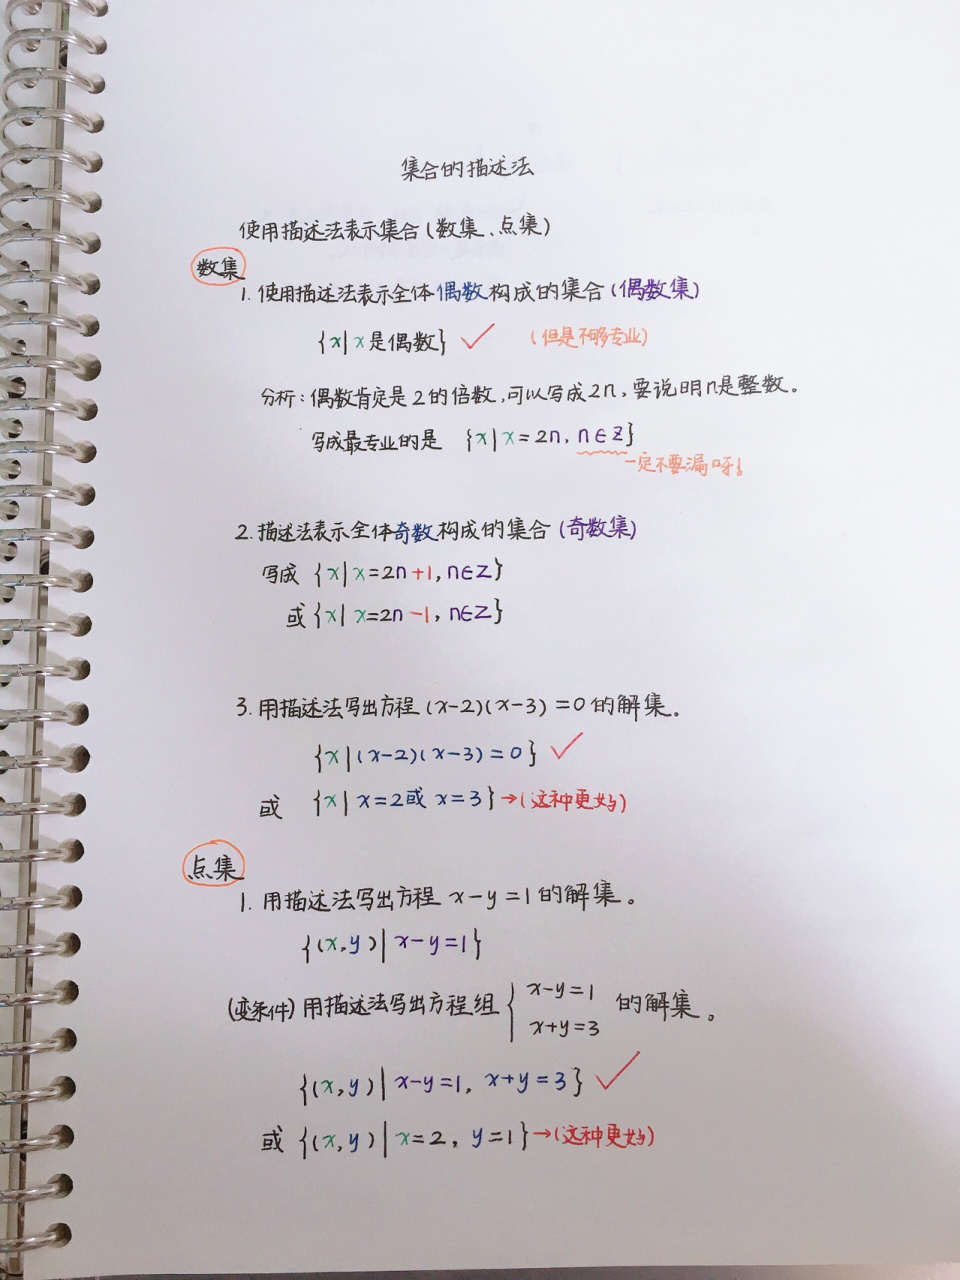 集合的描述法
使用描述法表示集合(数集、点集)
数集
1. 使用描述法表示全体偶数构成的集合(偶数集)
{x|x是偶数} ✓ (但是不够专业)
分析:偶数肯定是2的倍数,可以写成2n,要说明n是整数。
写成最专业的是 {x|x=2n, n∈Z}
一定不要漏呀!
2. 描述法表示全体奇数构成的集合(奇数集)
写成 {x|x=2n+1, n∈Z}
或{x|x=2n-1, n∈Z}
3. 用描述法写出方程(x-2)(x-3)=0的解集。
{x|(x-2)(x-3)=0} ✓
或 {x|x=2或x=3}→(这种更好)
点集
1. 用描述法写出方程 x-y=1的解集。
{(x,y)|x-y=1}
(变条件)用描述法写出方程组{x-y=1
x+y=3 的解集。
{(x,y)|x-y=1, x+y=3} ✓
或 {(x,y)|x=2, y=1}→(这种更好)